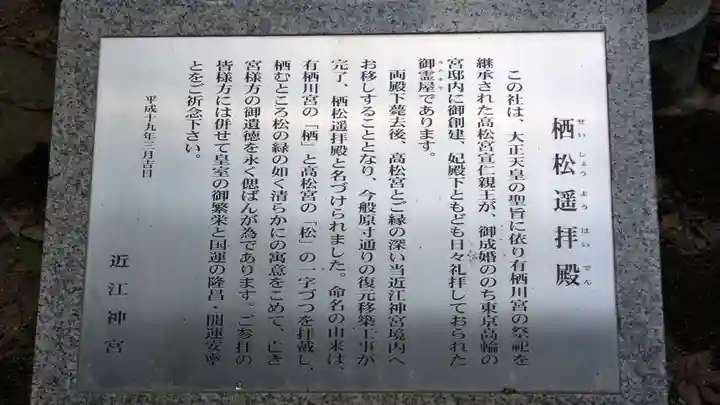 栖松遥拝殿
せいしょうようはいでん
この社は、大正天皇の聖旨に依り有栖川宮の祭祀を
継承された高松宮宣仁親王が、御成婚ののち東京高輪の
宮邸内に御創建、妃殿下ともども日々礼拝しておられた
御霊屋であります。
みたまや
両殿下薨去後、高松宮とご縁の深い当近江神宮境内へ
お移しすることとなり、今般原寸通りの復元移築工事が
完了、栖松遥拝殿と名づけられました。命名の由来は、
有栖川宮の「栖」と高松宮の「松」の一字づつを拝戴し、
栖むところ松の緑の如く清らかにの寓意をこめて、亡き
宮様方の御遺徳を永く偲ばんが為であります。ご参拝の
皆様方には併せて皇室の御繁栄と国運の隆昌・開運安寧
とをご祈念下さい。
平成十九年三月吉日
近江神宮